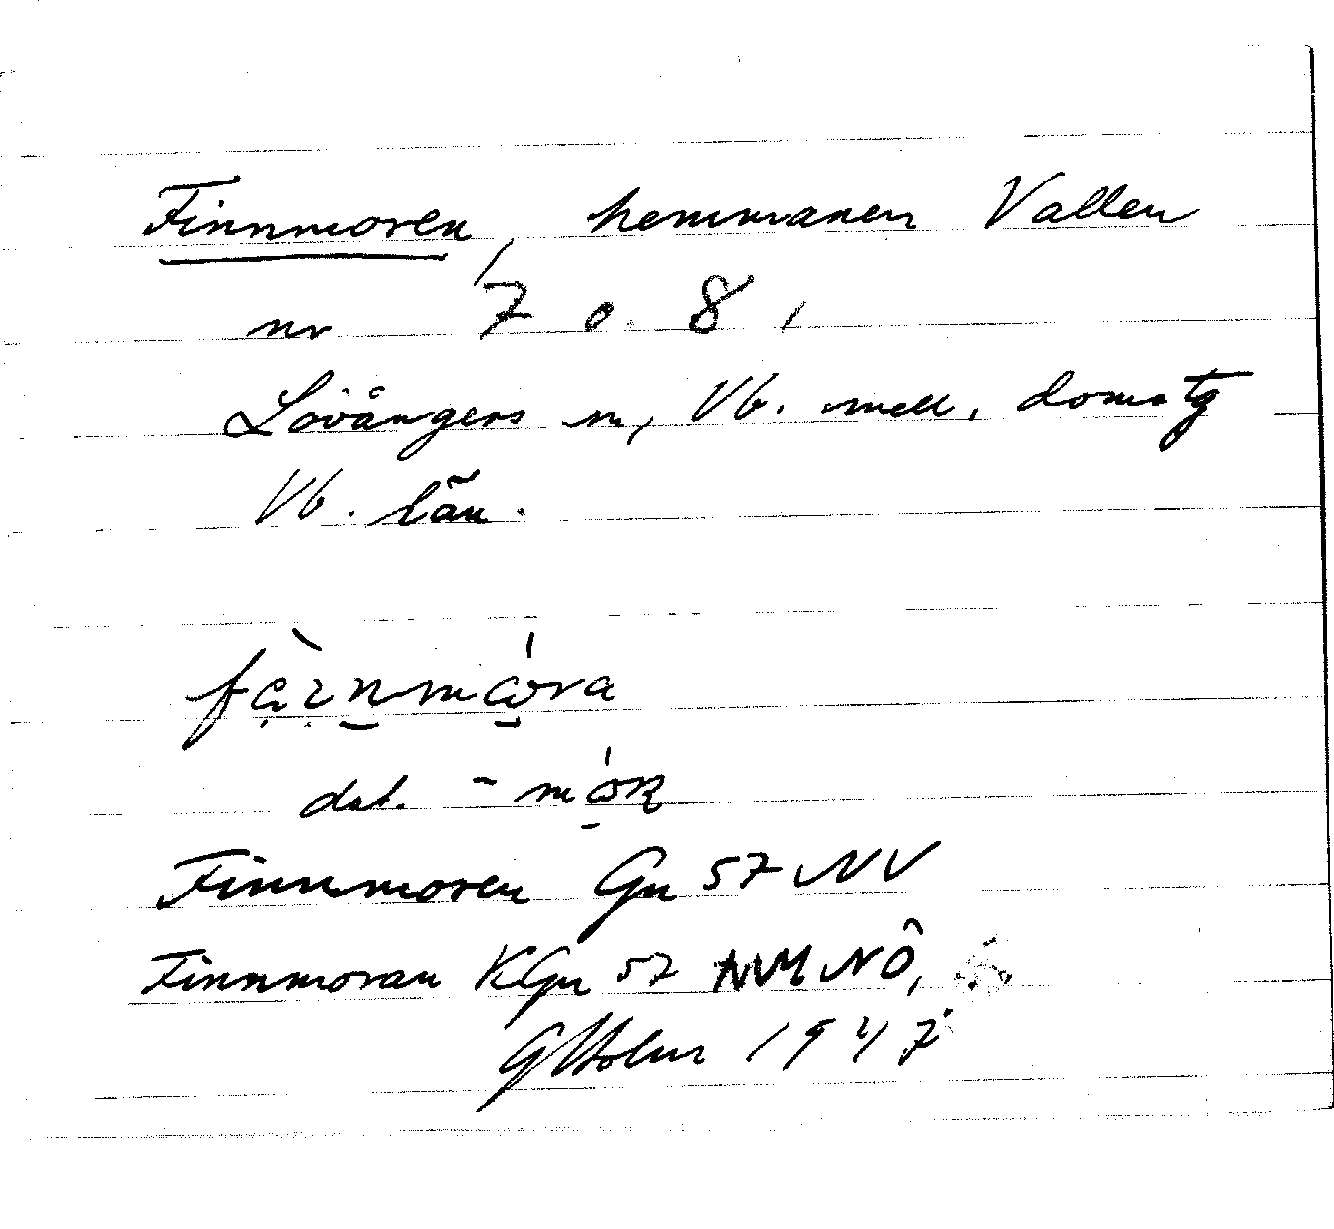 Finnmoren, hemmanen Vallen
nr 7 o. 8,
Lövångers sn, Vb. mell. domstg
Vb. län.
dat.
Finnmoren Gn 57 NV
Finnmoran KGn 57 NÖ,
GHolm 1947